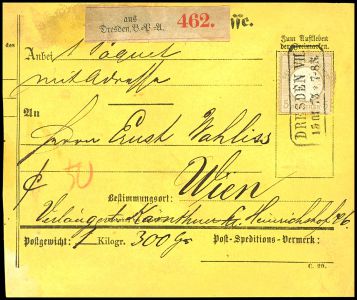 aus
Dresden, V.-V.A. 462.
sse.
Zum Aufkleben
der Freimarken.
des
Anbei 1 Paquet
mit Adresse
An
Herrn Ernst Wahliss
DRESDEN VII.
Wien
Bestimmungsort:
Verlängerte Kärnthner Heinrichshof
Postgewicht: 1 Kilogr. 300 Gr
Post-Speditions-Vermerk:
C. 20.